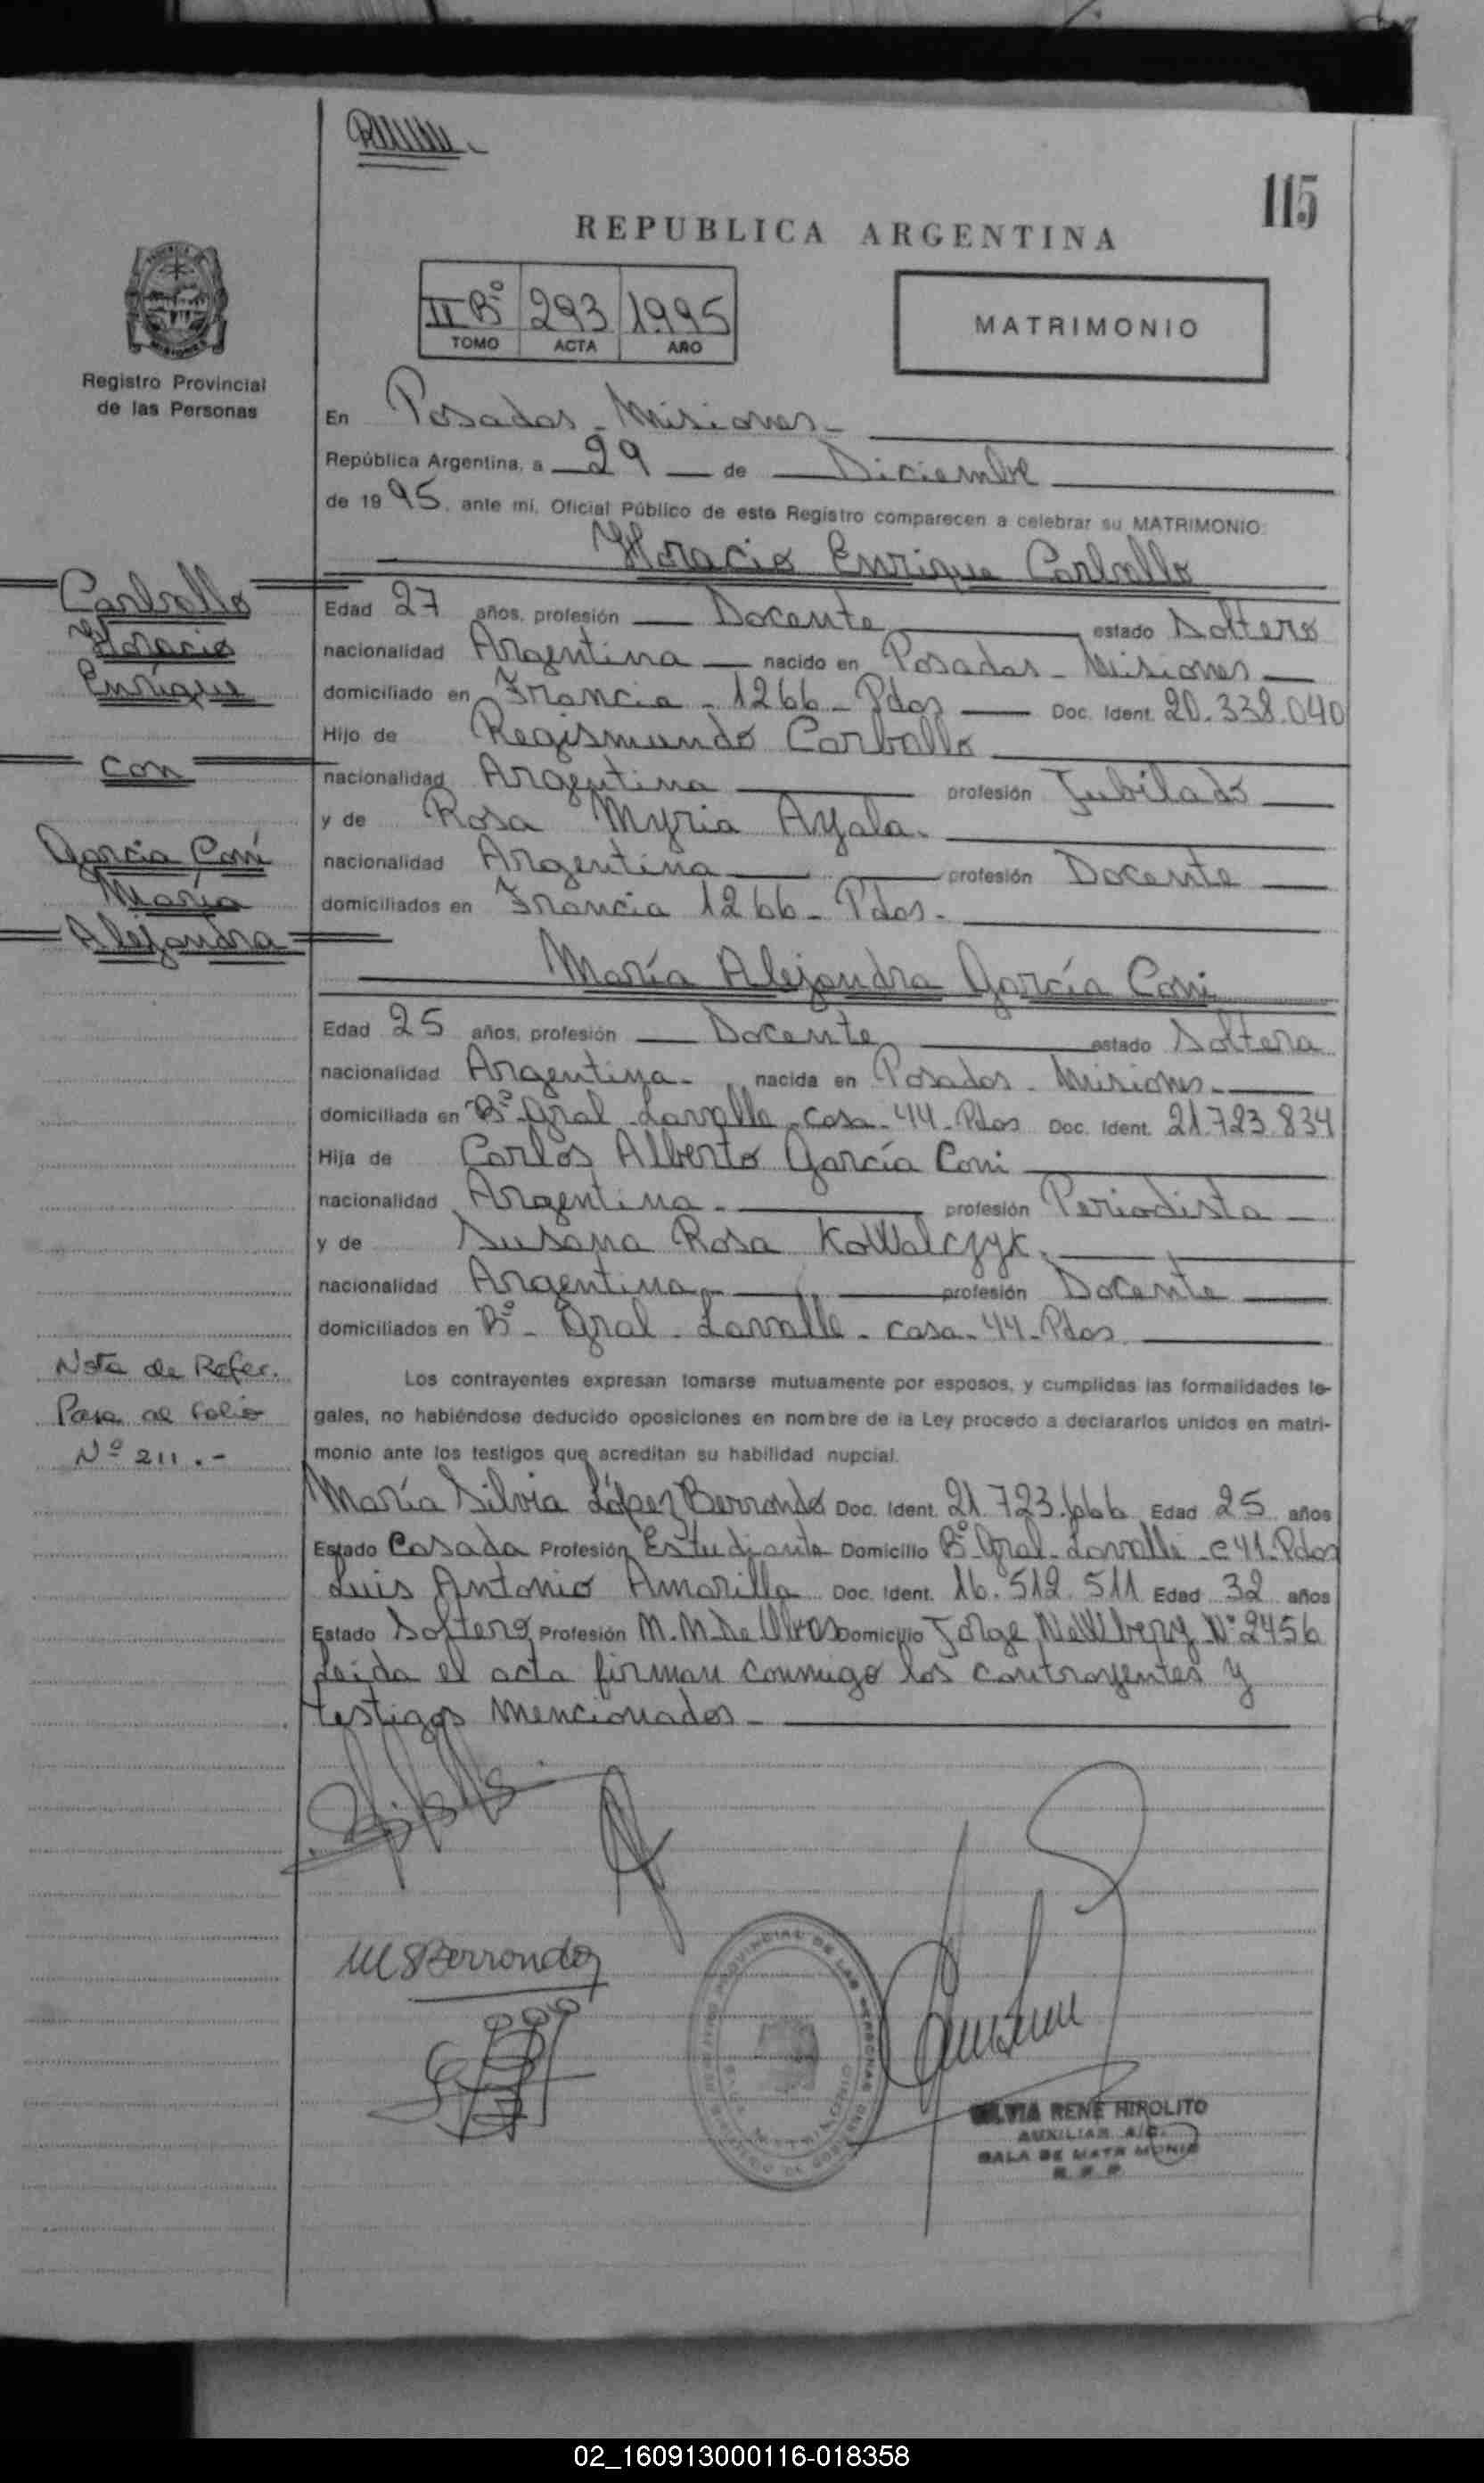 115
REPUBLICA ARGENTINA
II Bº 293 1995
TOMO ACTA AÑO
MATRIMONIO
Registro Provincial
de las Personas
En Posadas - Misiones -
República Argentina, a 29 de Diciembre
de 1995, ante mí, Oficial Público de este Registro comparecen a celebrar su MATRIMONIO
Horacio Enrique Carballo
Carballo
Horacio
Enrique
con
García Coni
María
Alejandra
Edad 27 años, profesión Docente estado Soltero
nacionalidad Argentina nacido en Posadas - Misiones
domiciliado en Francia - 1266 - Pdas Doc. Ident. 20.338.040
Hijo de Regismundo Carballo
nacionalidad Argentina profesión Jubilado
y de Rosa Myria Ayala.
nacionalidad Argentina profesión Docente
domiciliados en Francia 1266 - Pdas -
María Alejandra García Coni
Edad 25 años, profesión Docente estado Soltera
nacionalidad Argentina - nacida en Posadas - Misiones -
domiciliada en Bº Gral - Lavalle - casa - 44 - Pdas Doc. Ident. 21.723.834
Hija de Carlos Alberto García Coni
nacionalidad Argentina - profesión Periodista
y de Susana Rosa Kowalczyk.
nacionalidad Argentina profesión Docente
domiciliados en Bº - Gral - Lavalle - casa - 44 - Pdas
Nota de Refer.
Pasa al folio
Nº 211 . -
Los contrayentes expresan tomarse mutuamente por esposos, y cumplidas las formalidades le-
gales, no habiéndose deducido oposiciones en nombre de la Ley procedo a declararlos unidos en matri-
monio ante los testigos que acreditan su habilidad nupcial.
María Silvia López Berrondo Doc. Ident. 21.723. Edad 25 años
Estado Casada Profesión Estudiante Domicilio Bº Gral - Lavalle - c 41 - Pdas
Luis Antonio Amarilla Doc. Ident. 16.512.511 Edad 32 años
Estado Soltero Profesión M.M. De Obras Domicilio Jorge Newbery Nº 2456
Leída el acta firman conmigo los contrayentes y
testigos mencionados -
MSBerrondo
SILVIA RENE HIPOLITO
AUXILIAR A/C.
SALA DE MATRIMONIO
R. P. P.
02_160913000116-018358